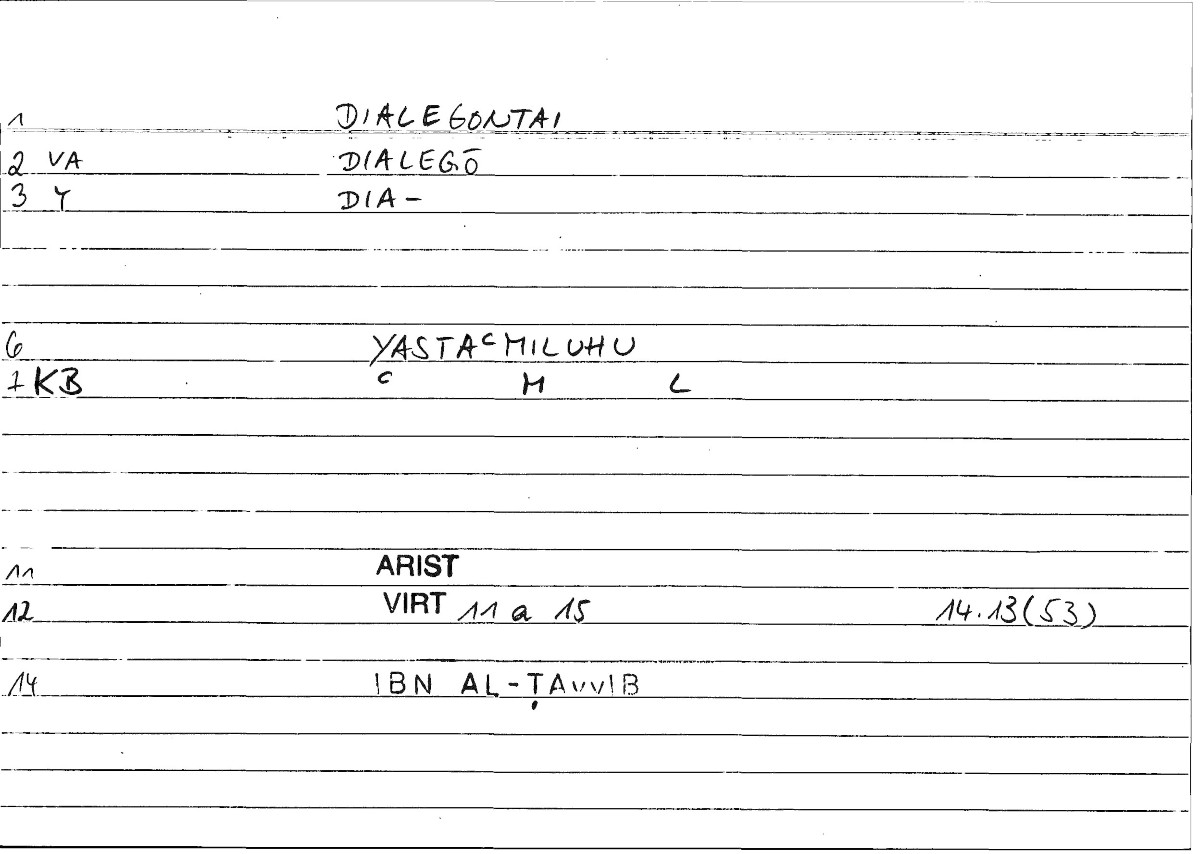 1 DIALEGONTAI
2 VA DIALEGŌ
3 Y DIA-
6 YASTAᶜMILUHU
7 KB ᶜ M L
11 ARIST
12 VIRT 11 a 15 14.13(53)
14 IBN AL-ṬAYYIB